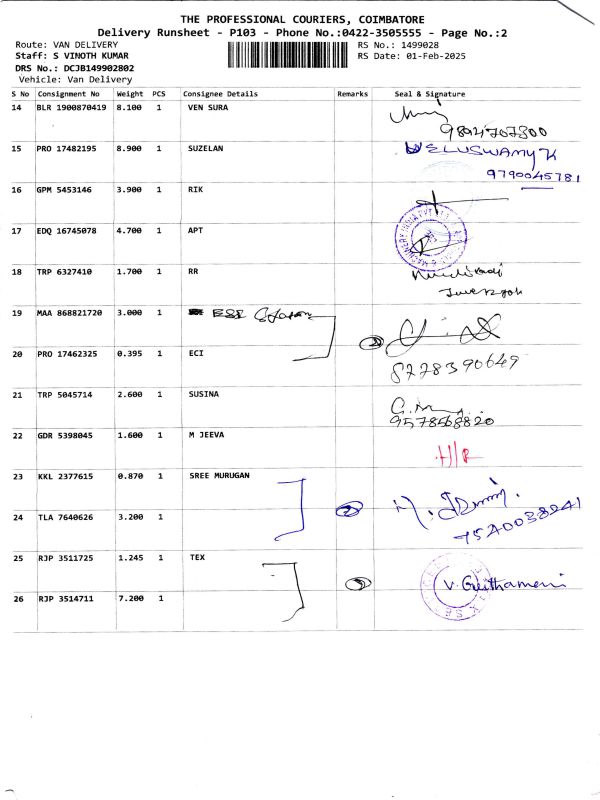 THE PROFESSIONAL COURIERS, COIMBATORE
Delivery Runsheet - P103 - Phone No.:0422-3505555 - Page No.:2
Route: VAN DELIVERY RS No.: 1499028
Staff: S VINOTH KUMAR RS Date: 01-Feb-2025
DRS No.: DCJB149902802
Vehicle: Van Delivery
S No Consignment No Weight PCS Consignee Details Remarks Seal & Signature
14 BLR 1900870419 8.100 1 VEN SURA
15 PRO 17482195 8.900 1 SUZELAN VELUSWAMY K
9790045781
16 GPM 5453146 3.900 1 RIK
17 EDQ 16745078 4.700 1 APT
18 TRP 6327410 1.700 1 RR
19 MAA 868821720 3.000 1
20 PRO 17462325 0.395 1 ECI 8778390649
21 TRP 5045714 2.600 1 SUSINA
9578568820
22 GDR 5398045 1.600 1 M JEEVA
23 KKL 2377615 0.870 1 SREE MURUGAN
24 TLA 7640626 3.200 1 7540038241
25 RJP 3511725 1.245 1 TEX V. Geethamani
26 RJP 3514711 7.200 1